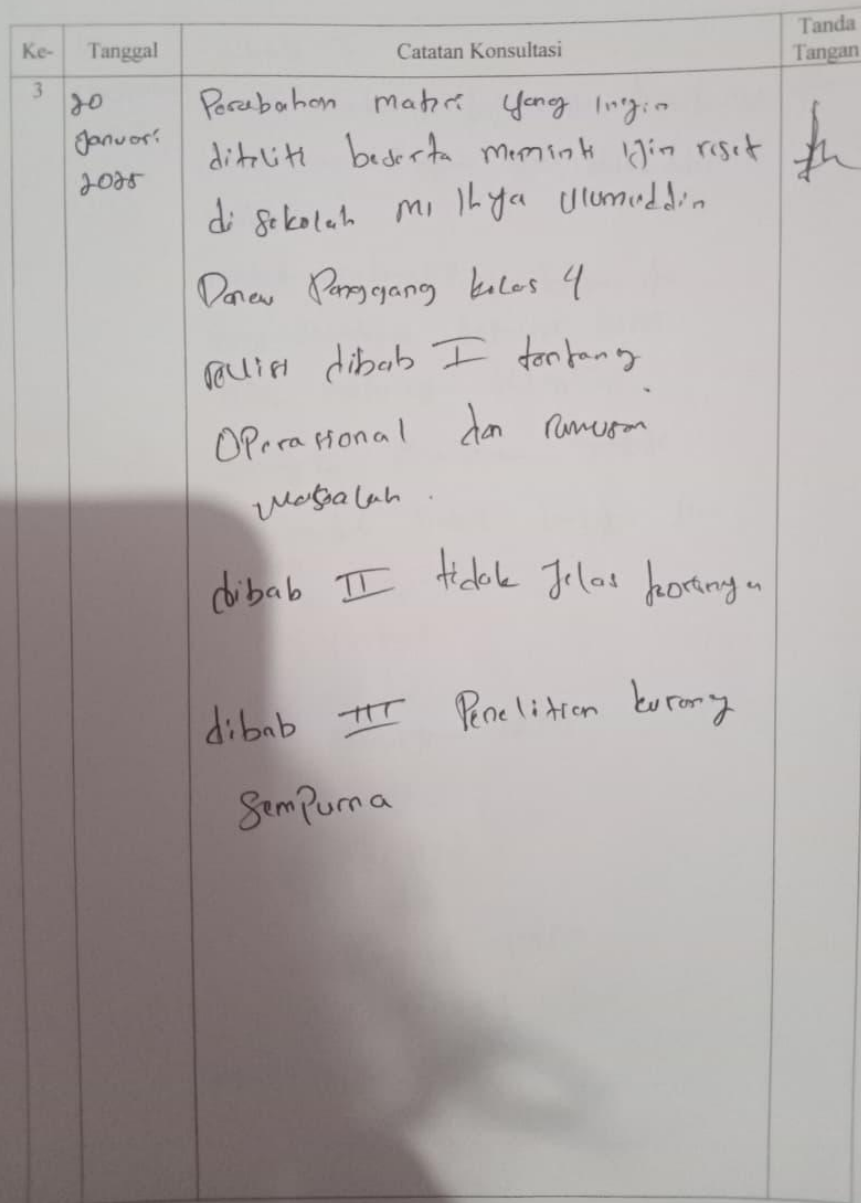 Ke- Tanggal Catatan Konsultasi Tanda Tangan
3 20 Januari 2025
Perubahan materi yang ingin
diteliti beserta meminta izin riset
di sekolah MI Ihya Ulumuddin
Danau Panggang kelas 4
revisi dibab I tentang
Operasional dan rumusan
Masalah.
dibab II tidak Jelas
dibab III Penelitian kurang
Sempurna